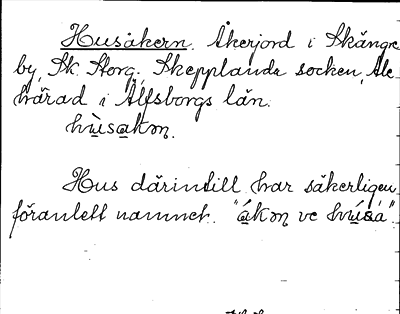 Husåkern. Åkerjord i Skånge
by, Sk. Storg. Skepplanda socken, Ale
härad i Älfsborgs län.
hùsakɷn.
Hus därintill har säkerligen
föranlett namnet. "ákɷn ve húsa".